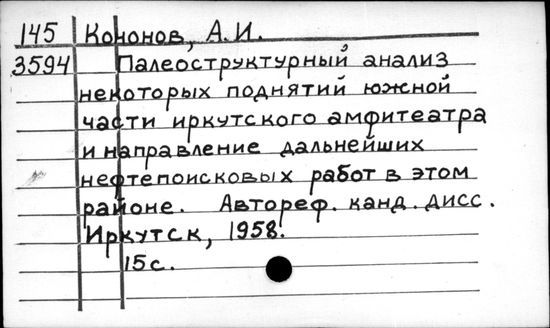 145 Кононов, А.И.
3594 Палеоструктурный анализ
некоторых поднятий южной
части иркутского амфитеатра
и направление дальнейших
нефтепоисковых работ в этом
районе. Автореф. канд. дисс.
Иркутск, 1958.
15с.